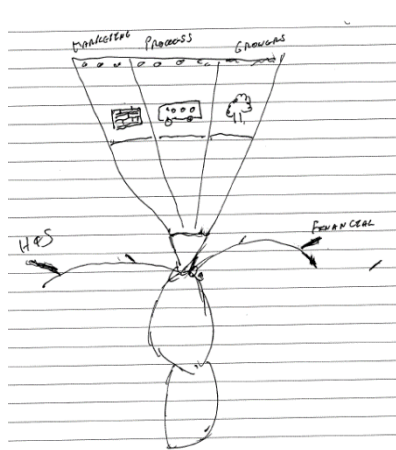 MARKETING PROCESS GROWERS
FINANCIAL
H&S